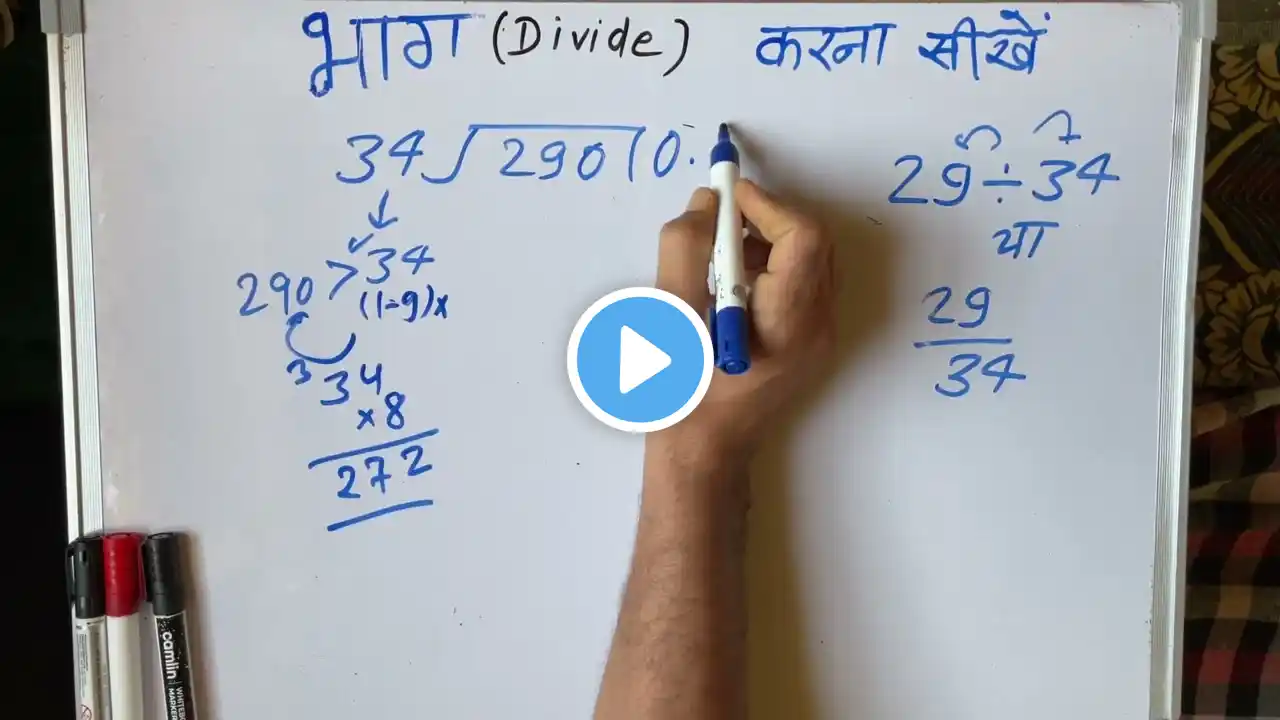 भाग (Divide) करना सीखें
34 ) 290 ( 0.
29 ÷ 34
या
29
34
290 > 34
(1-9)x
3
34
x8
272
camlin
WHITEBO
MARKER